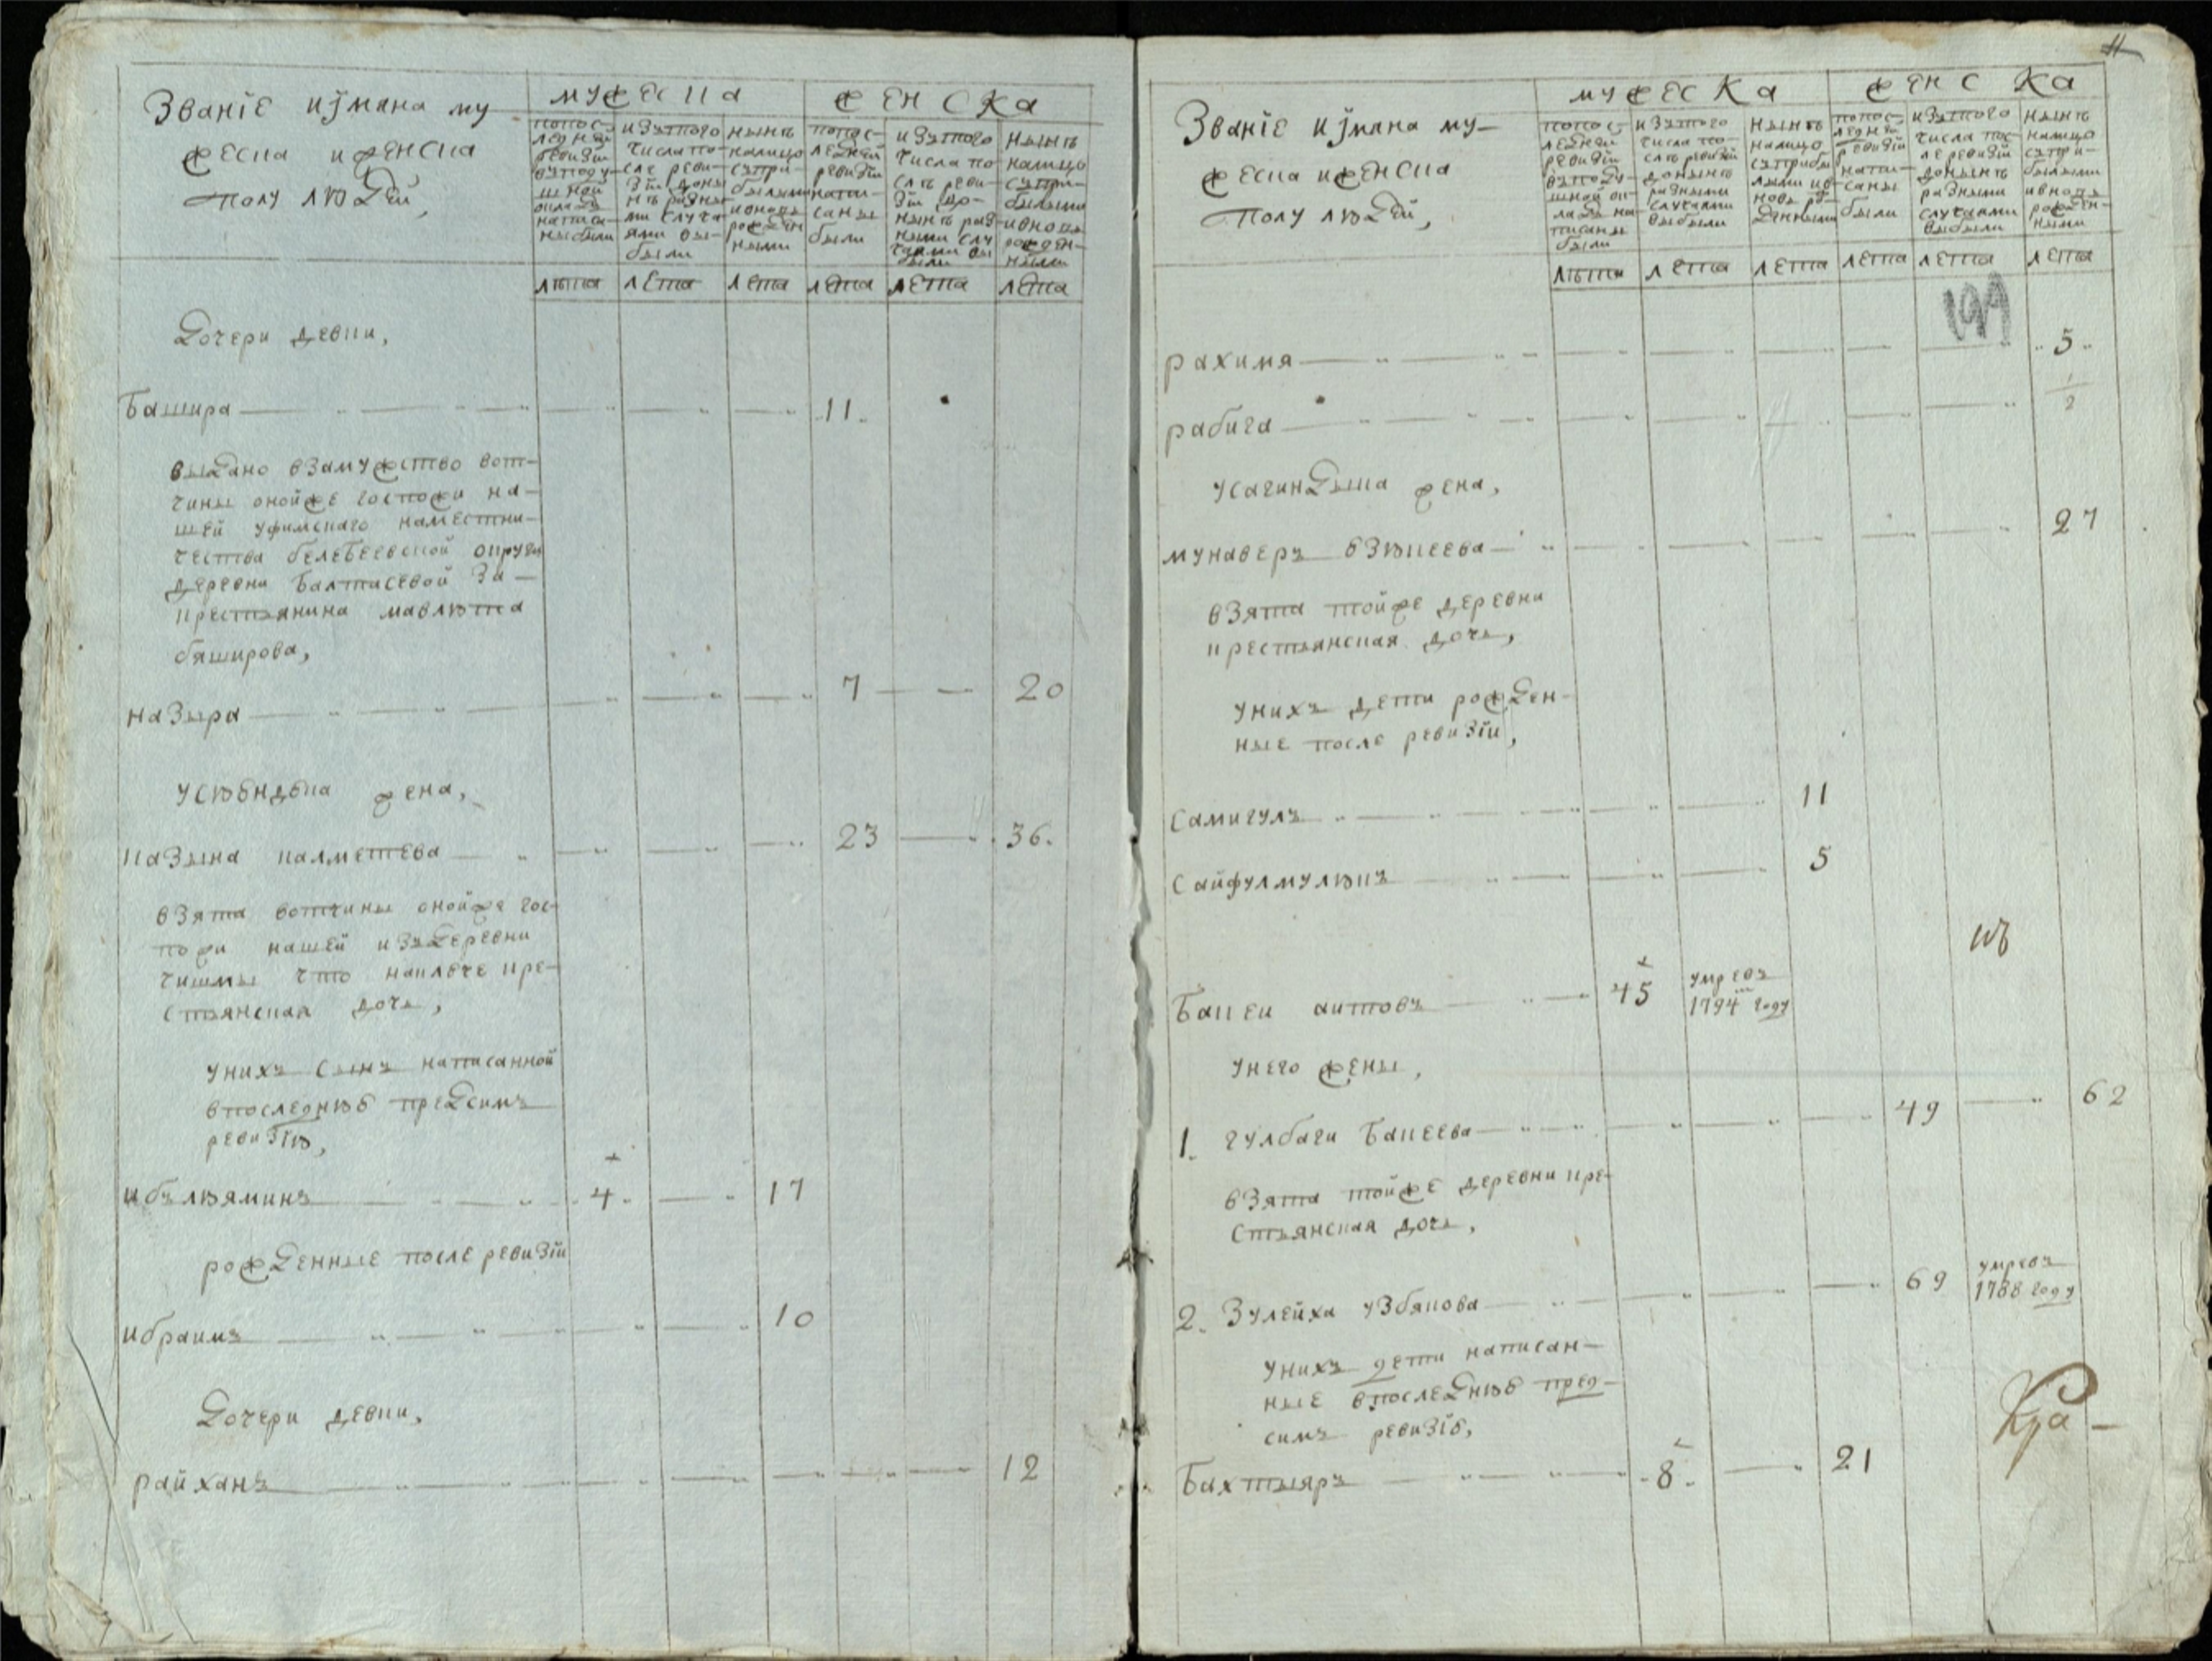 Званiе и имяна му
жеска и женска
полу людей,
мужеска
женска
попос-
ледней
ревизiи
вподу-
шной
окладъ
написа-
ны были
изътого
числа по-
сле реви-
зiи доны
нѣ разны
ми случа
ями вы-
были
нынѣ
налицо
съпри-
былыми
ивновь
рожден
ными
попос-
ледней
ревизiи
напи-
саны
были
изътого
числа по
слѣ реви-
зiи до-
нынѣ раз-
ными слу
чаями вы
были
нынѣ
налицо
съпри-
былыми
ивновь
рожден-
ными
лѣта лета лета лета лета лета
Дочери девки,
Башира 11.
выдано взамужство вот-
чины онойже госпожи на-
шей уфимскаго наместни-
чества белебеевской округи
деревни Балтасевой за
крестьянина мавлюта
баширова,
назыра 7 20
усюбндюка жена,
казына калметева 23 36.
взята вотчины онойже гос-
пожи нашей изъдеревни
чишмы что накlюче кре-
стьянская дочь,
унихъ сынъ написанной
впоследнюю предсимъ
ревизiю,
ибълюяминъ 4. 17
рожденные после ревизiи
ибраимъ 10
Дочери девки,
райханъ 12
11
Званiе и имяна му-
жеска иженска
полу людей,
мужеска
женска
попос-
ледней
ревизiи
въподу-
шной ок-
ладъ на-
писаны
были
изътого
числа по-
слѣ ревизiи
донынѣ
разными
случаями
выбыли
нынѣ
налицо
съприбы
лыми ив-
новь ро-
жденными
попос-
ледней
ревизiи
напи-
саны
были
изътого
числа пос-
ле ревизiи
донынѣ
разными
случаями
выбыли
нынѣ
налицо
съпри-
былыми
ивновь
рожден-
ными
лѣта лета лета лета лета лета
199
рахимя 5
рабига 1/2
усагиндыка жена,
мунаверъ бзюкеева 27
взята тойже деревни
крестьянская дочь,
унихъ дети рожден-
ные после ревизiи,
самигулъ 11
сайфулмулюкъ 5
Бакеи аитовъ 45 умревъ
1794 году
унего жены,
1. гулбаги Бакеева 49 62
взята тойже деревни кре-
стьянская дочь,
2. Зулейха узбякова 69 умревъ
1788 году
унихъ дети написан-
ные впоследнюю пред-
симъ ревизiю,
Бахтыяръ 8. 21